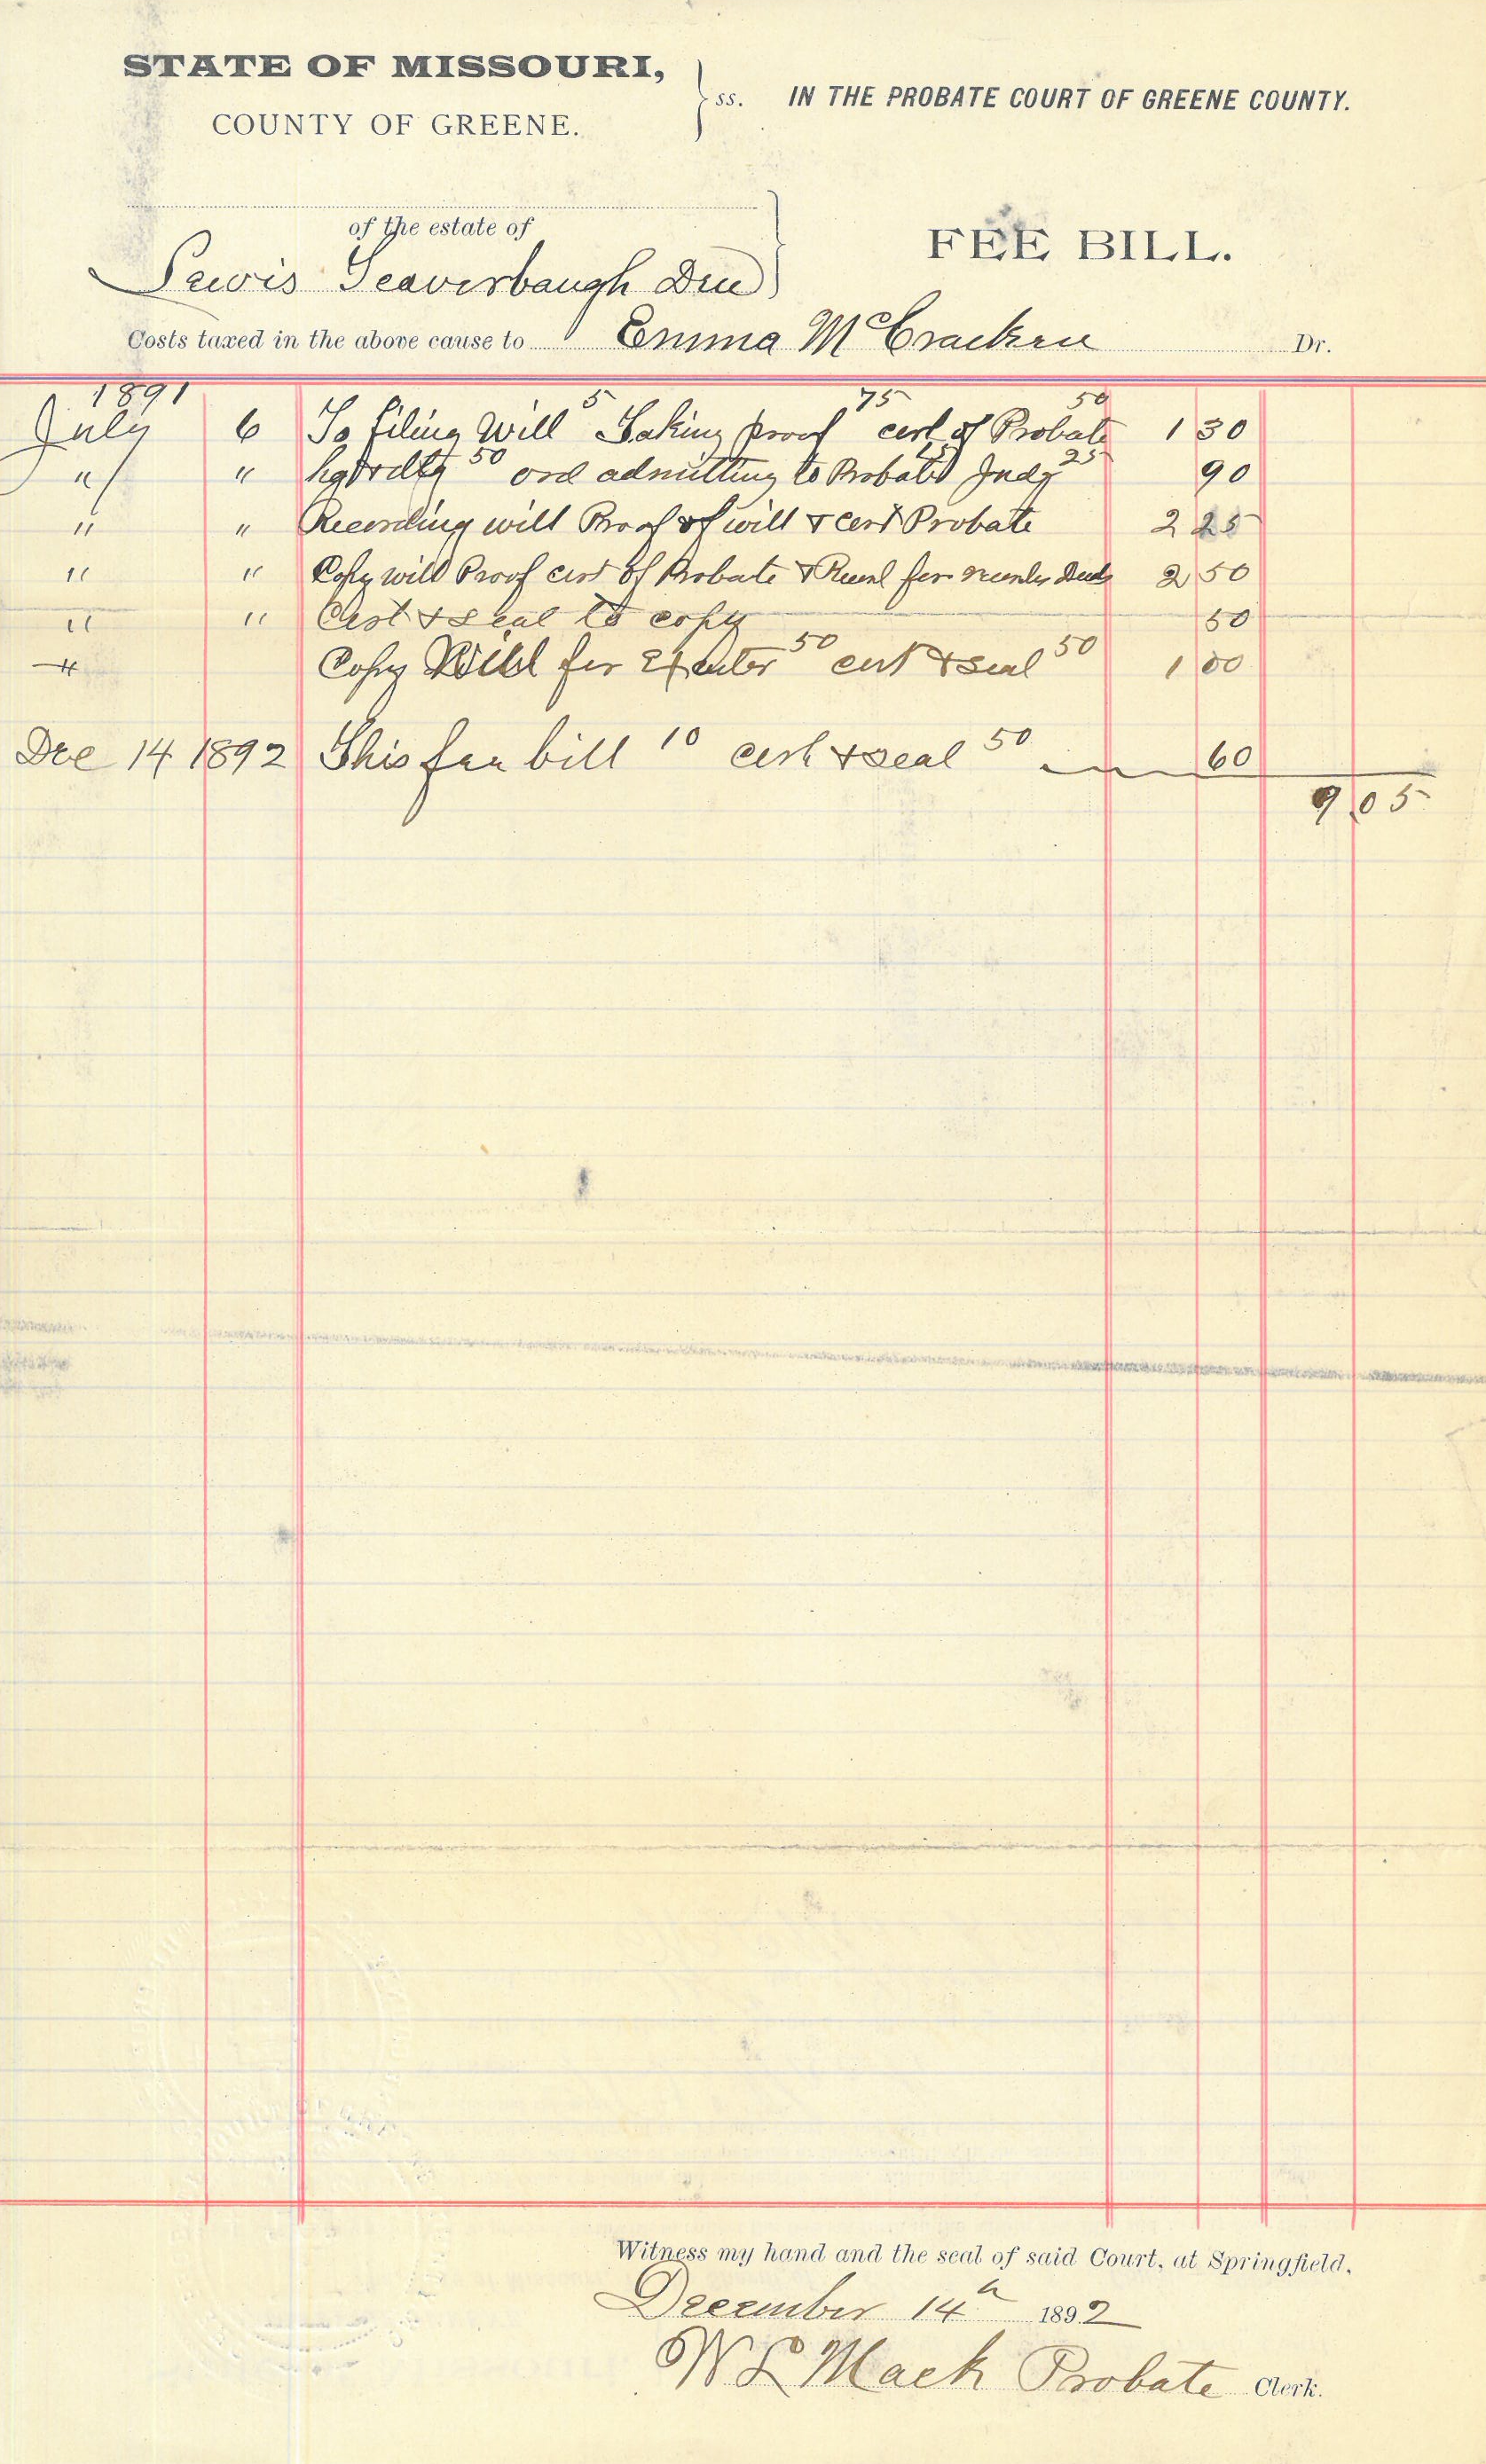 STATE OF MISSOURI,
COUNTY OF GREENE.
ss. IN THE PROBATE COURT OF GREENE COUNTY.
of the estate of
Lewis Leaverbaugh Dec
FEE BILL.
Costs taxed in the above cause to Emma McCracken Dr.
1891
July 6 To filing Will 5 Taking proof 75 cert of Probate 50 1 30
" " 50 ord admitting to Probate 15 Judg 25 90
" " Recording will Proof of will & cert Probate 2 25
" " Copy will Proof cert of Probate & Recd for Deeds 2 50
" " Cert & seal to copy 50
" Copy Will for Exutor 50 cert & seal 50 1 00
Dec 14 1892 This fee bill 10 cert & seal 50 60
9 05
Witness my hand and the seal of said Court, at Springfield,
December 14th 1892
W L Mack Probate Clerk.